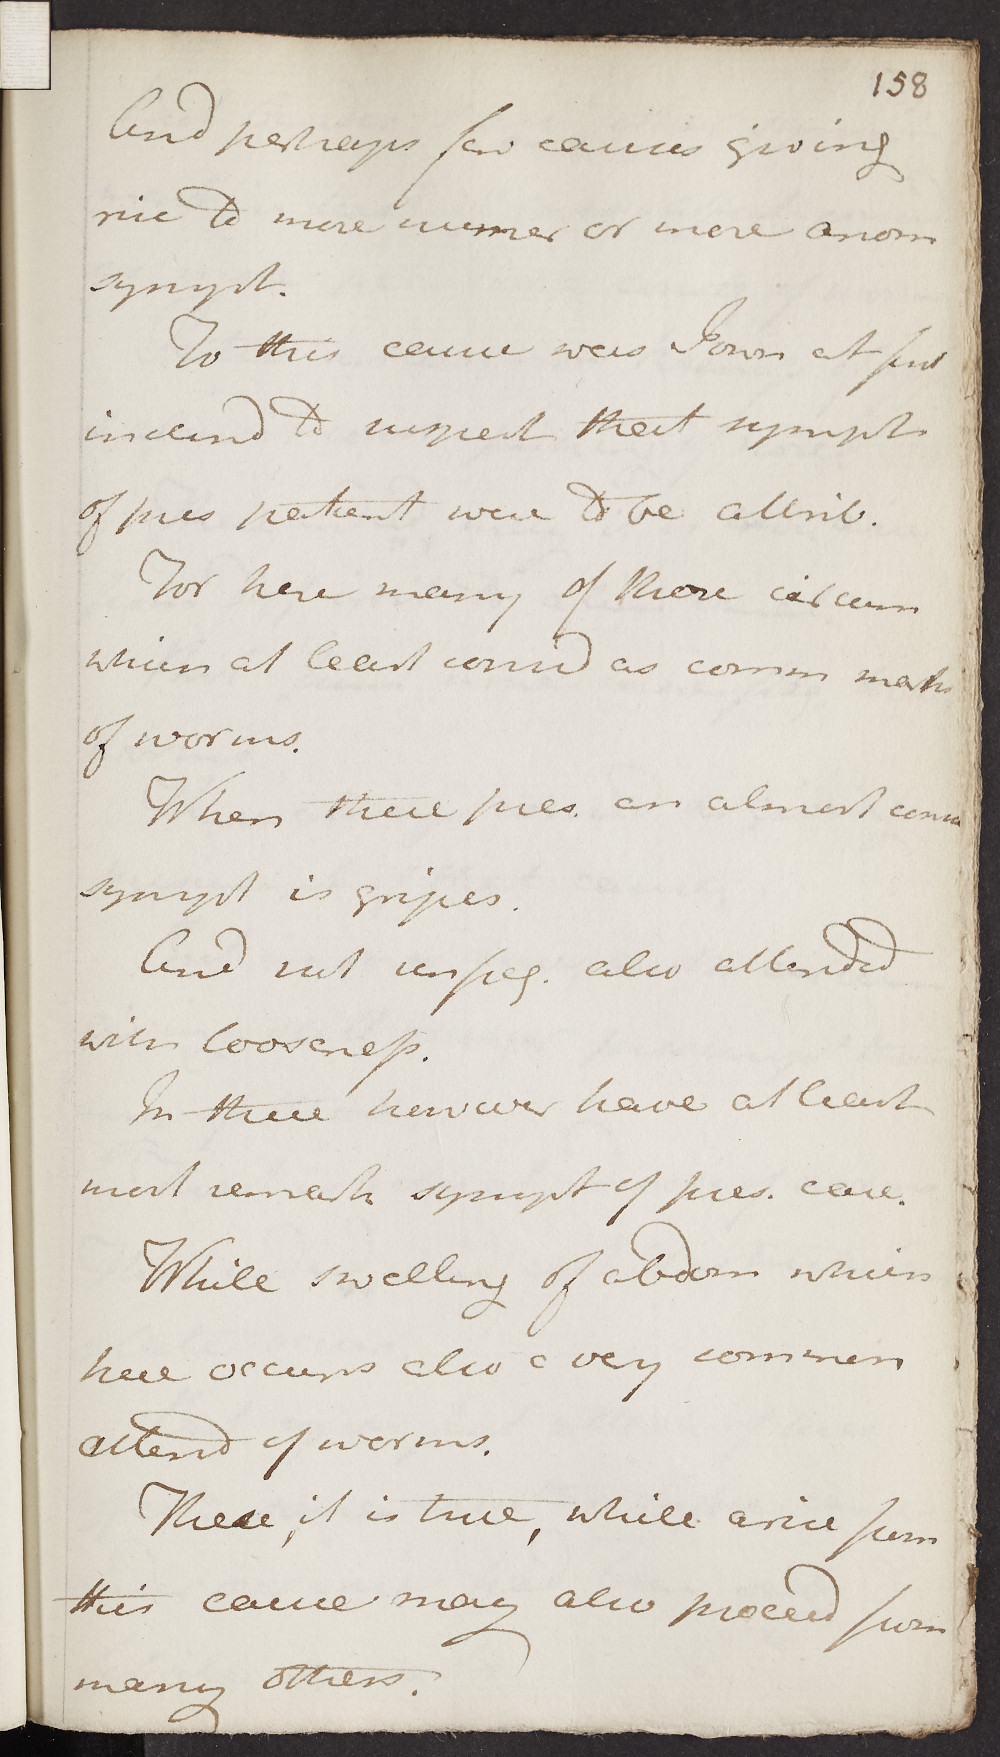 158
And perhaps few causes giving
rise to more numer or more anom
sympt.
To this cause was I own at first
inclind to suspect that sympt
of pres patient were to be attrib.
For here many of those circum
which at least consid as comm marks
of worms.
When these pres. an almost
sympt is gripes.
And not unfreq. also attended
with looseness.
In these however have at least
most remark sympt of pres. case.
While swelling of abdom which
here occurs also a very common
attend of worms.
These, it is true, while arise from
this cause may also proceed from
many others.